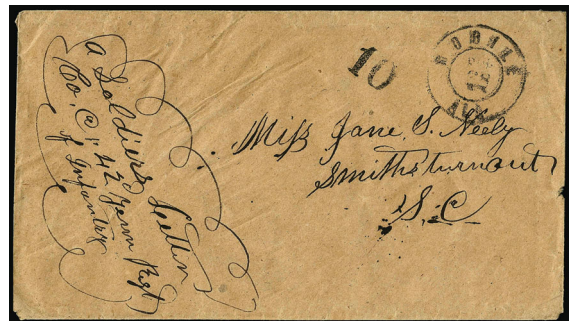 A Soldiers Letter
Co. C, 42 Tenn Regt
of Infantry
10
MOBILE
ALA
Miss Jane S. Neely
Smiths turnout
S. C